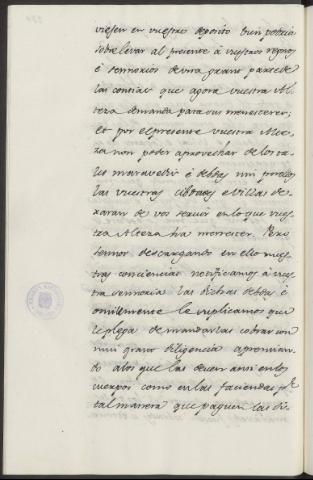 viesen en vuestro deposito bien podria
sobrelevar al presente á vuestros regnos
é sennorios de una grant parte de
las contias que agora vuestra Al-
teza demanda para sus menesteres;
et por el presente vuestra Alte-
za non poder aprovechar de los ta-
les maravedis é debdas nin por eso
las vuestras cibdades e villas de-
xaran de vos servir en lo que vues-
tra Alteza ha menester. Pero
sennor descargando en ello nues-
tras conciencias notificamos á vues-
tra sennoria las dichas debdas é
omilmente le suplicamos que
le plega de mandarlas cobrar con
muy grant diligencia apremian-
do a los que las deven ansi en los
cuerpos como en las faciendas por
tal manera que paguen las di-